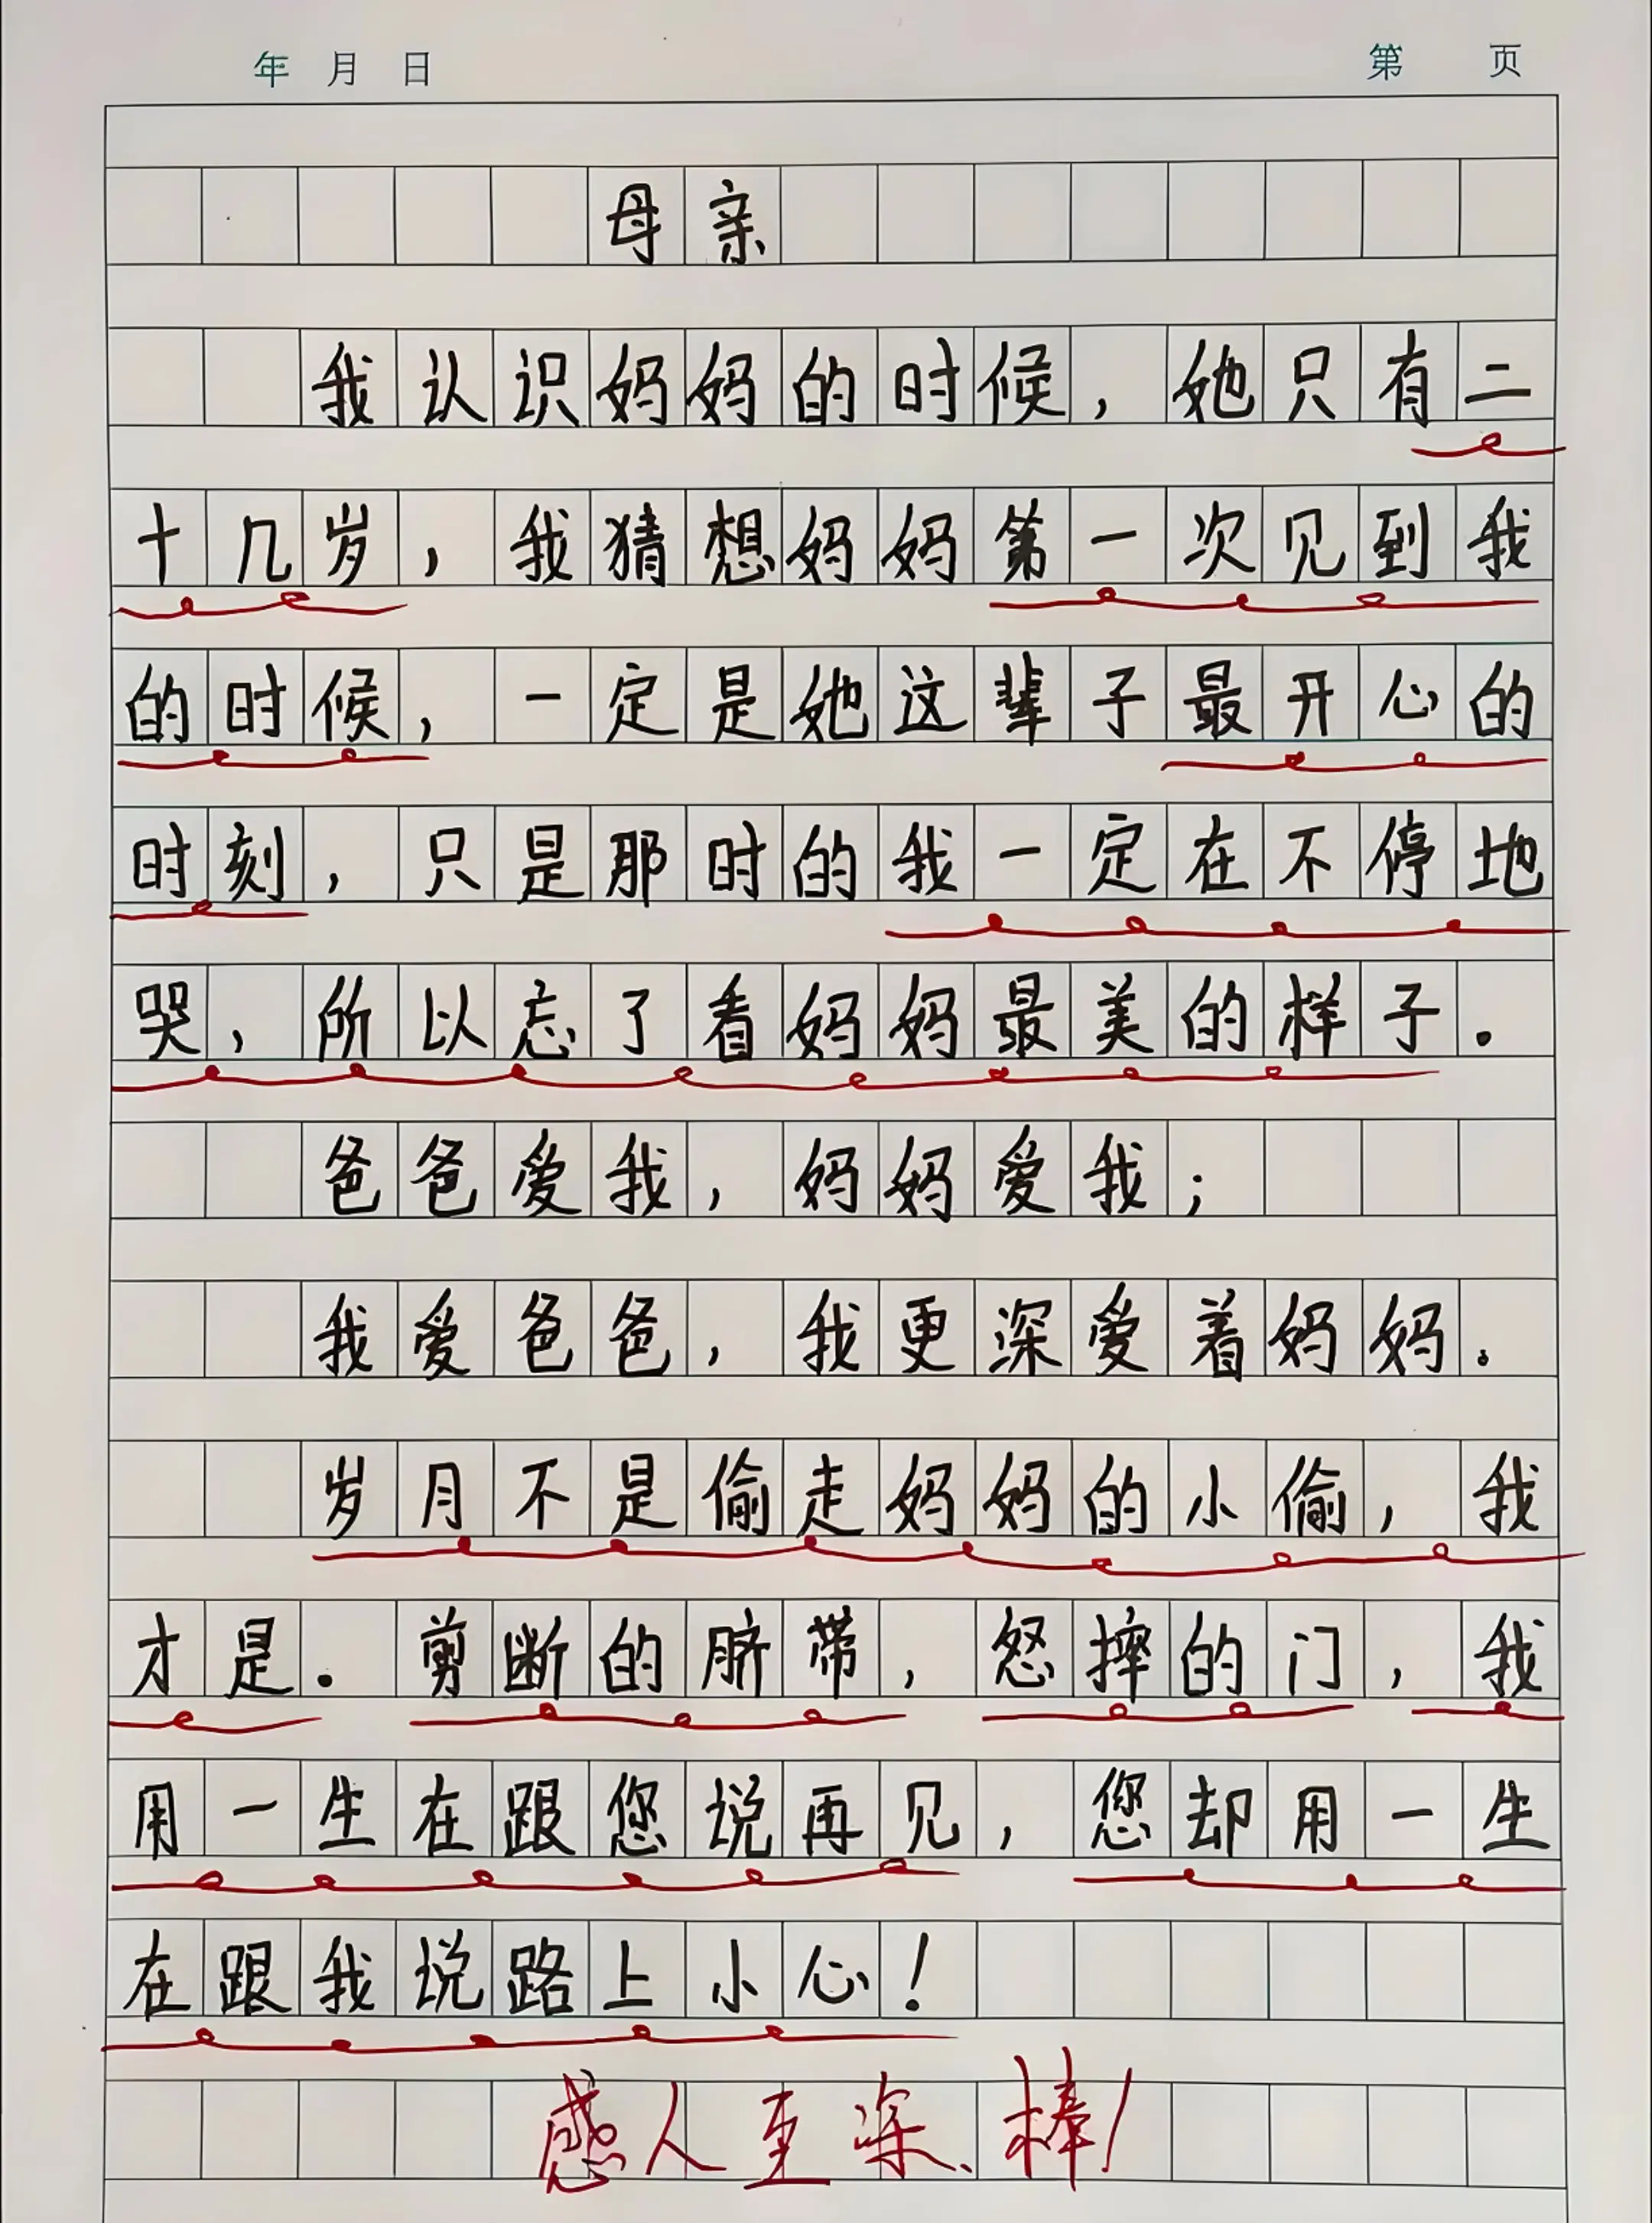 年 月 日 第 页
母亲
我认识妈妈的时候，她只有二
十几岁，我猜想妈妈第一次见到我
的时候，一定是她这辈子最开心的
时刻，只是那时的我一定在不停地
哭，所以忘了看妈妈最美的样子.
爸爸爱我，妈妈爱我；
我爱爸爸，我更深爱着妈妈。
岁月不是偷走妈妈的小偷，我
才是.剪断的脐带，怒摔的门，我
用一生在跟您说再见，您却用一生
在跟我说路上小心！
感人至深、棒！